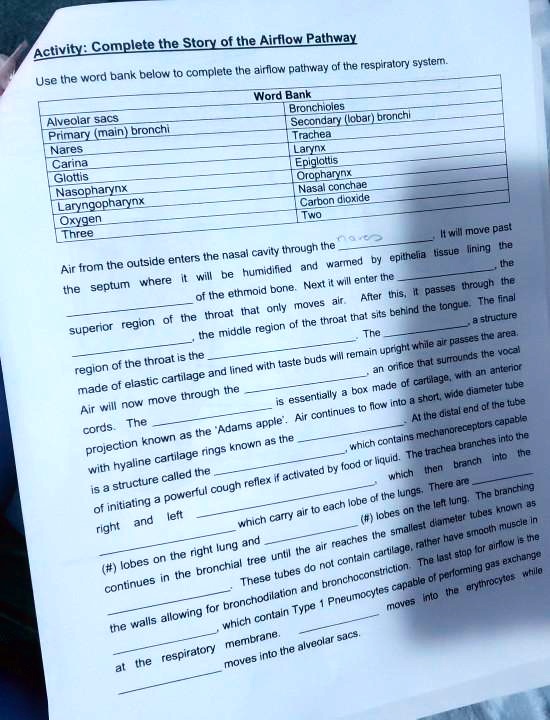 Activity: Complete the Story of the Airflow Pathway
Use the word bank below to complete the airflow pathway of the respiratory system.
Word Bank
Alveolar sacs Bronchioles
Primary (main) bronchi Secondary (lobar) bronchi
Nares Trachea
Carina Larynx
Glottis Epiglottis
Nasopharynx Oropharynx
Laryngopharynx Nasal conchae
Oxygen Carbon dioxide
Three Two
Air from the outside enters the nasal cavity through the nares. It will move past
the septum where it will be humidified and warmed by epithelia tissue lining the
of the ethmoid bone. Next it will enter the , the
superior region of the throat that only moves air. After this, it passes through the
, the middle region of the throat that sits behind the tongue. The final
region of the throat is the . The , a structure
made of elastic cartilage and lined with taste buds will remain upright while air passes the area.
Air will now move through the , an orifice that surrounds the vocal
cords. The is essentially a box made of cartilage, with an anterior
projection known as the 'Adams apple'. Air continues to flow into a short, wide diameter tube
with hyaline cartilage rings known as the . At the distal end of the tube
is a structure called the , which contains mechanoreceptors capable
of initiating a powerful cough reflex if activated by food or liquid. The trachea branches into the
right and left , which then branch into the
which carry air to each lobe of the lungs. There are
(#) lobes on the right lung and (#) lobes on the left lung. The branching
continues in the bronchial tree until the air reaches the smallest diameter tubes known as
. These tubes do not contain cartilage, rather have smooth muscle in
the walls allowing for bronchodilation and bronchoconstriction. The last stop for airflow is the
, which contain Type 1 Pneumocytes capable of performing gas exchange
at the respiratory membrane. moves into the erythrocytes while
moves into the alveolar sacs.